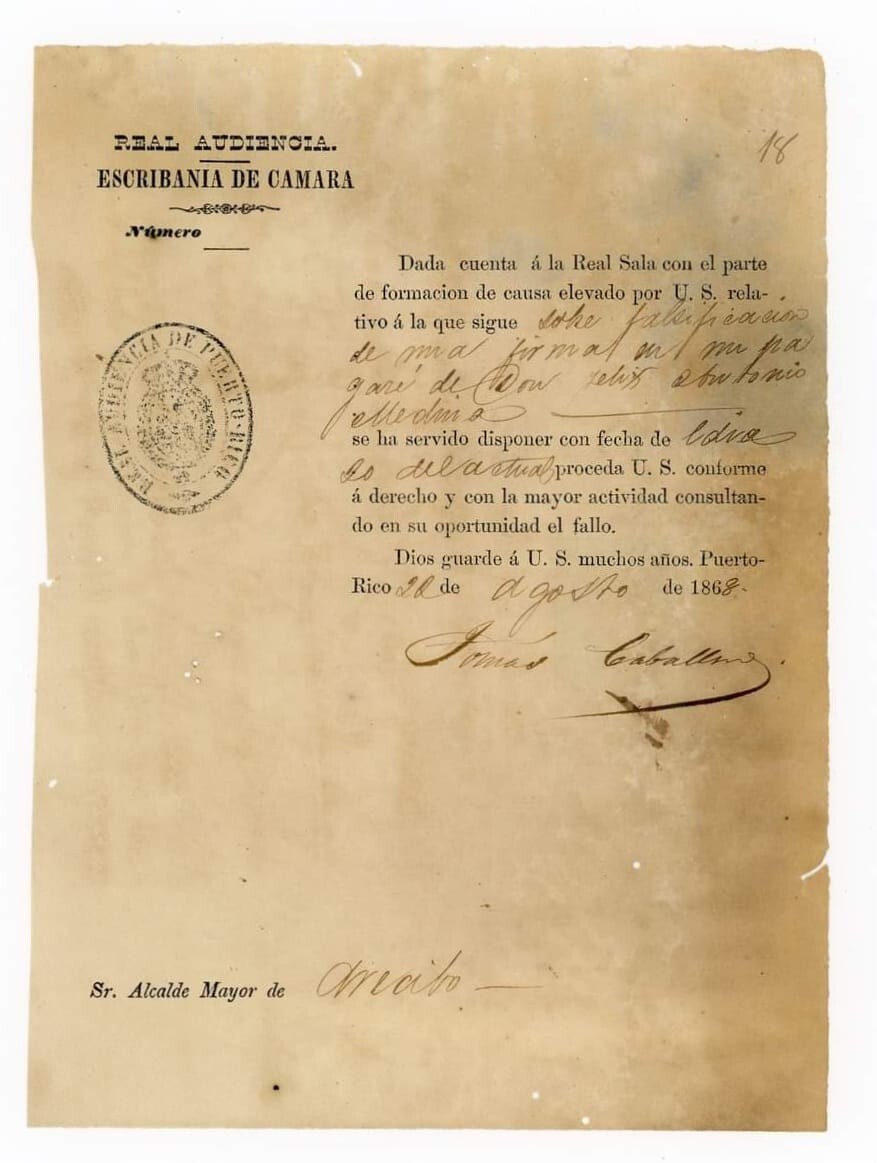 18
REAL AUDIENCIA.
ESCRIBANIA DE CAMARA
Número
REAL AUDIENCIA DE PUERTO-RICO
Dada cuenta á la Real Sala con el parte
de formacion de causa elevado por U. S. rela-
tivo á la que sigue sobre falsificacion
de una firma en un pa
garé de Don Felix Antonio
Medina
se ha servido disponer con fecha de
del actual proceda U. S. conforme
á derecho y con la mayor actividad consultan-
do en su oportunidad el fallo.
Dios guarde á U. S. muchos años. Puerto-
Rico 22 de Agosto de 1868.
Tomás Caballero
Sr. Alcalde Mayor de Arecibo